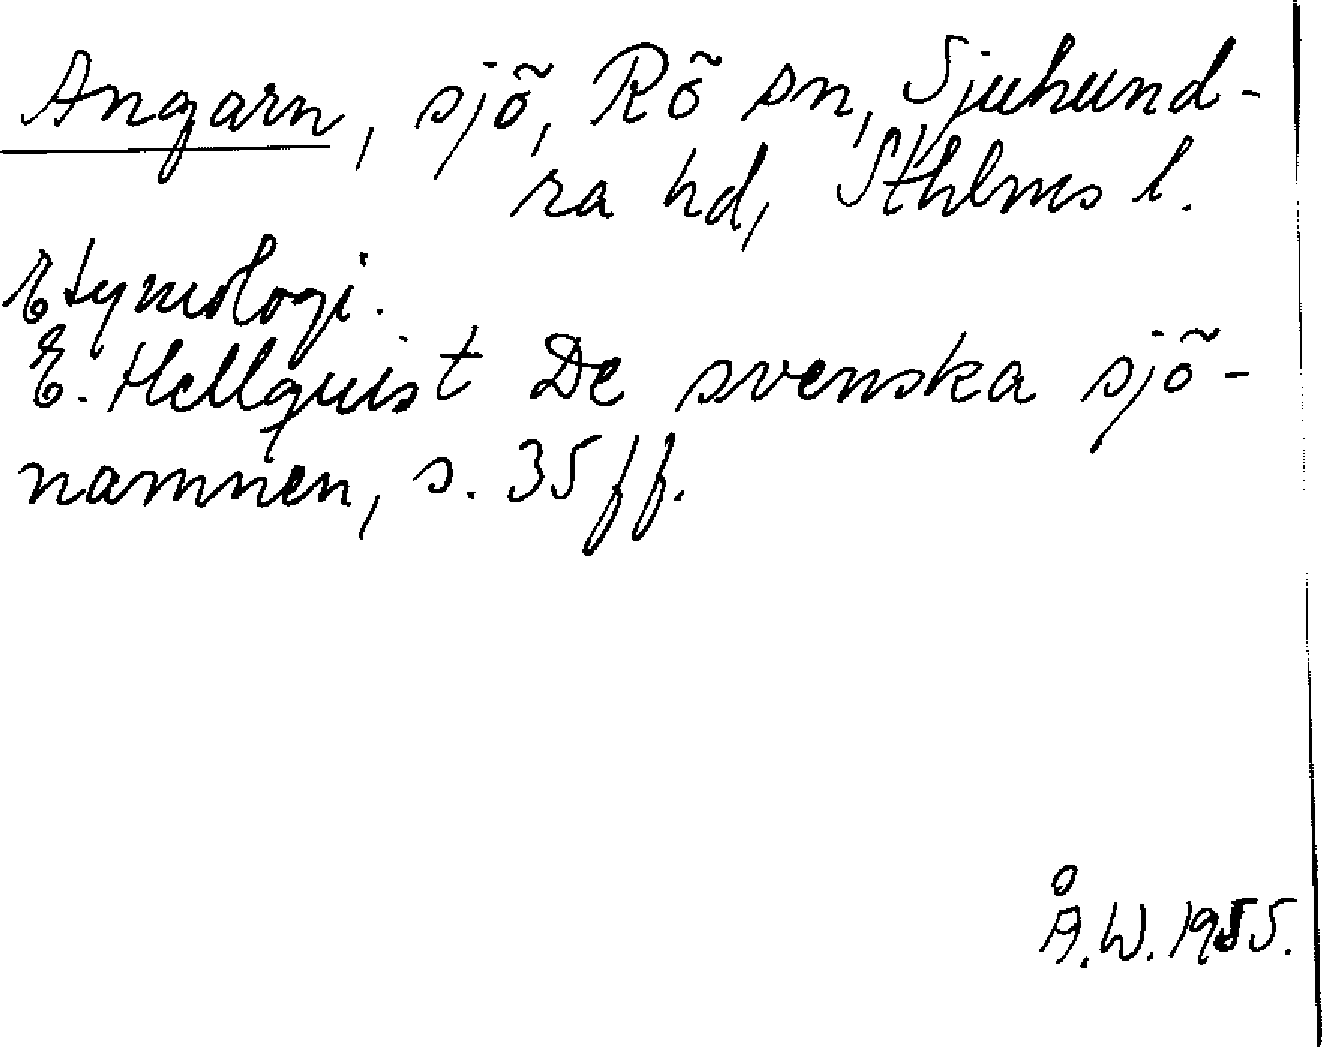 Angarn, sjö, Rö sn, Sjuhund-
ra hd, Sthlms l.
Etymologi.
E. Hellquist De svenska sjö-
namnen, s. 35 ff.
Å.W. 1955.